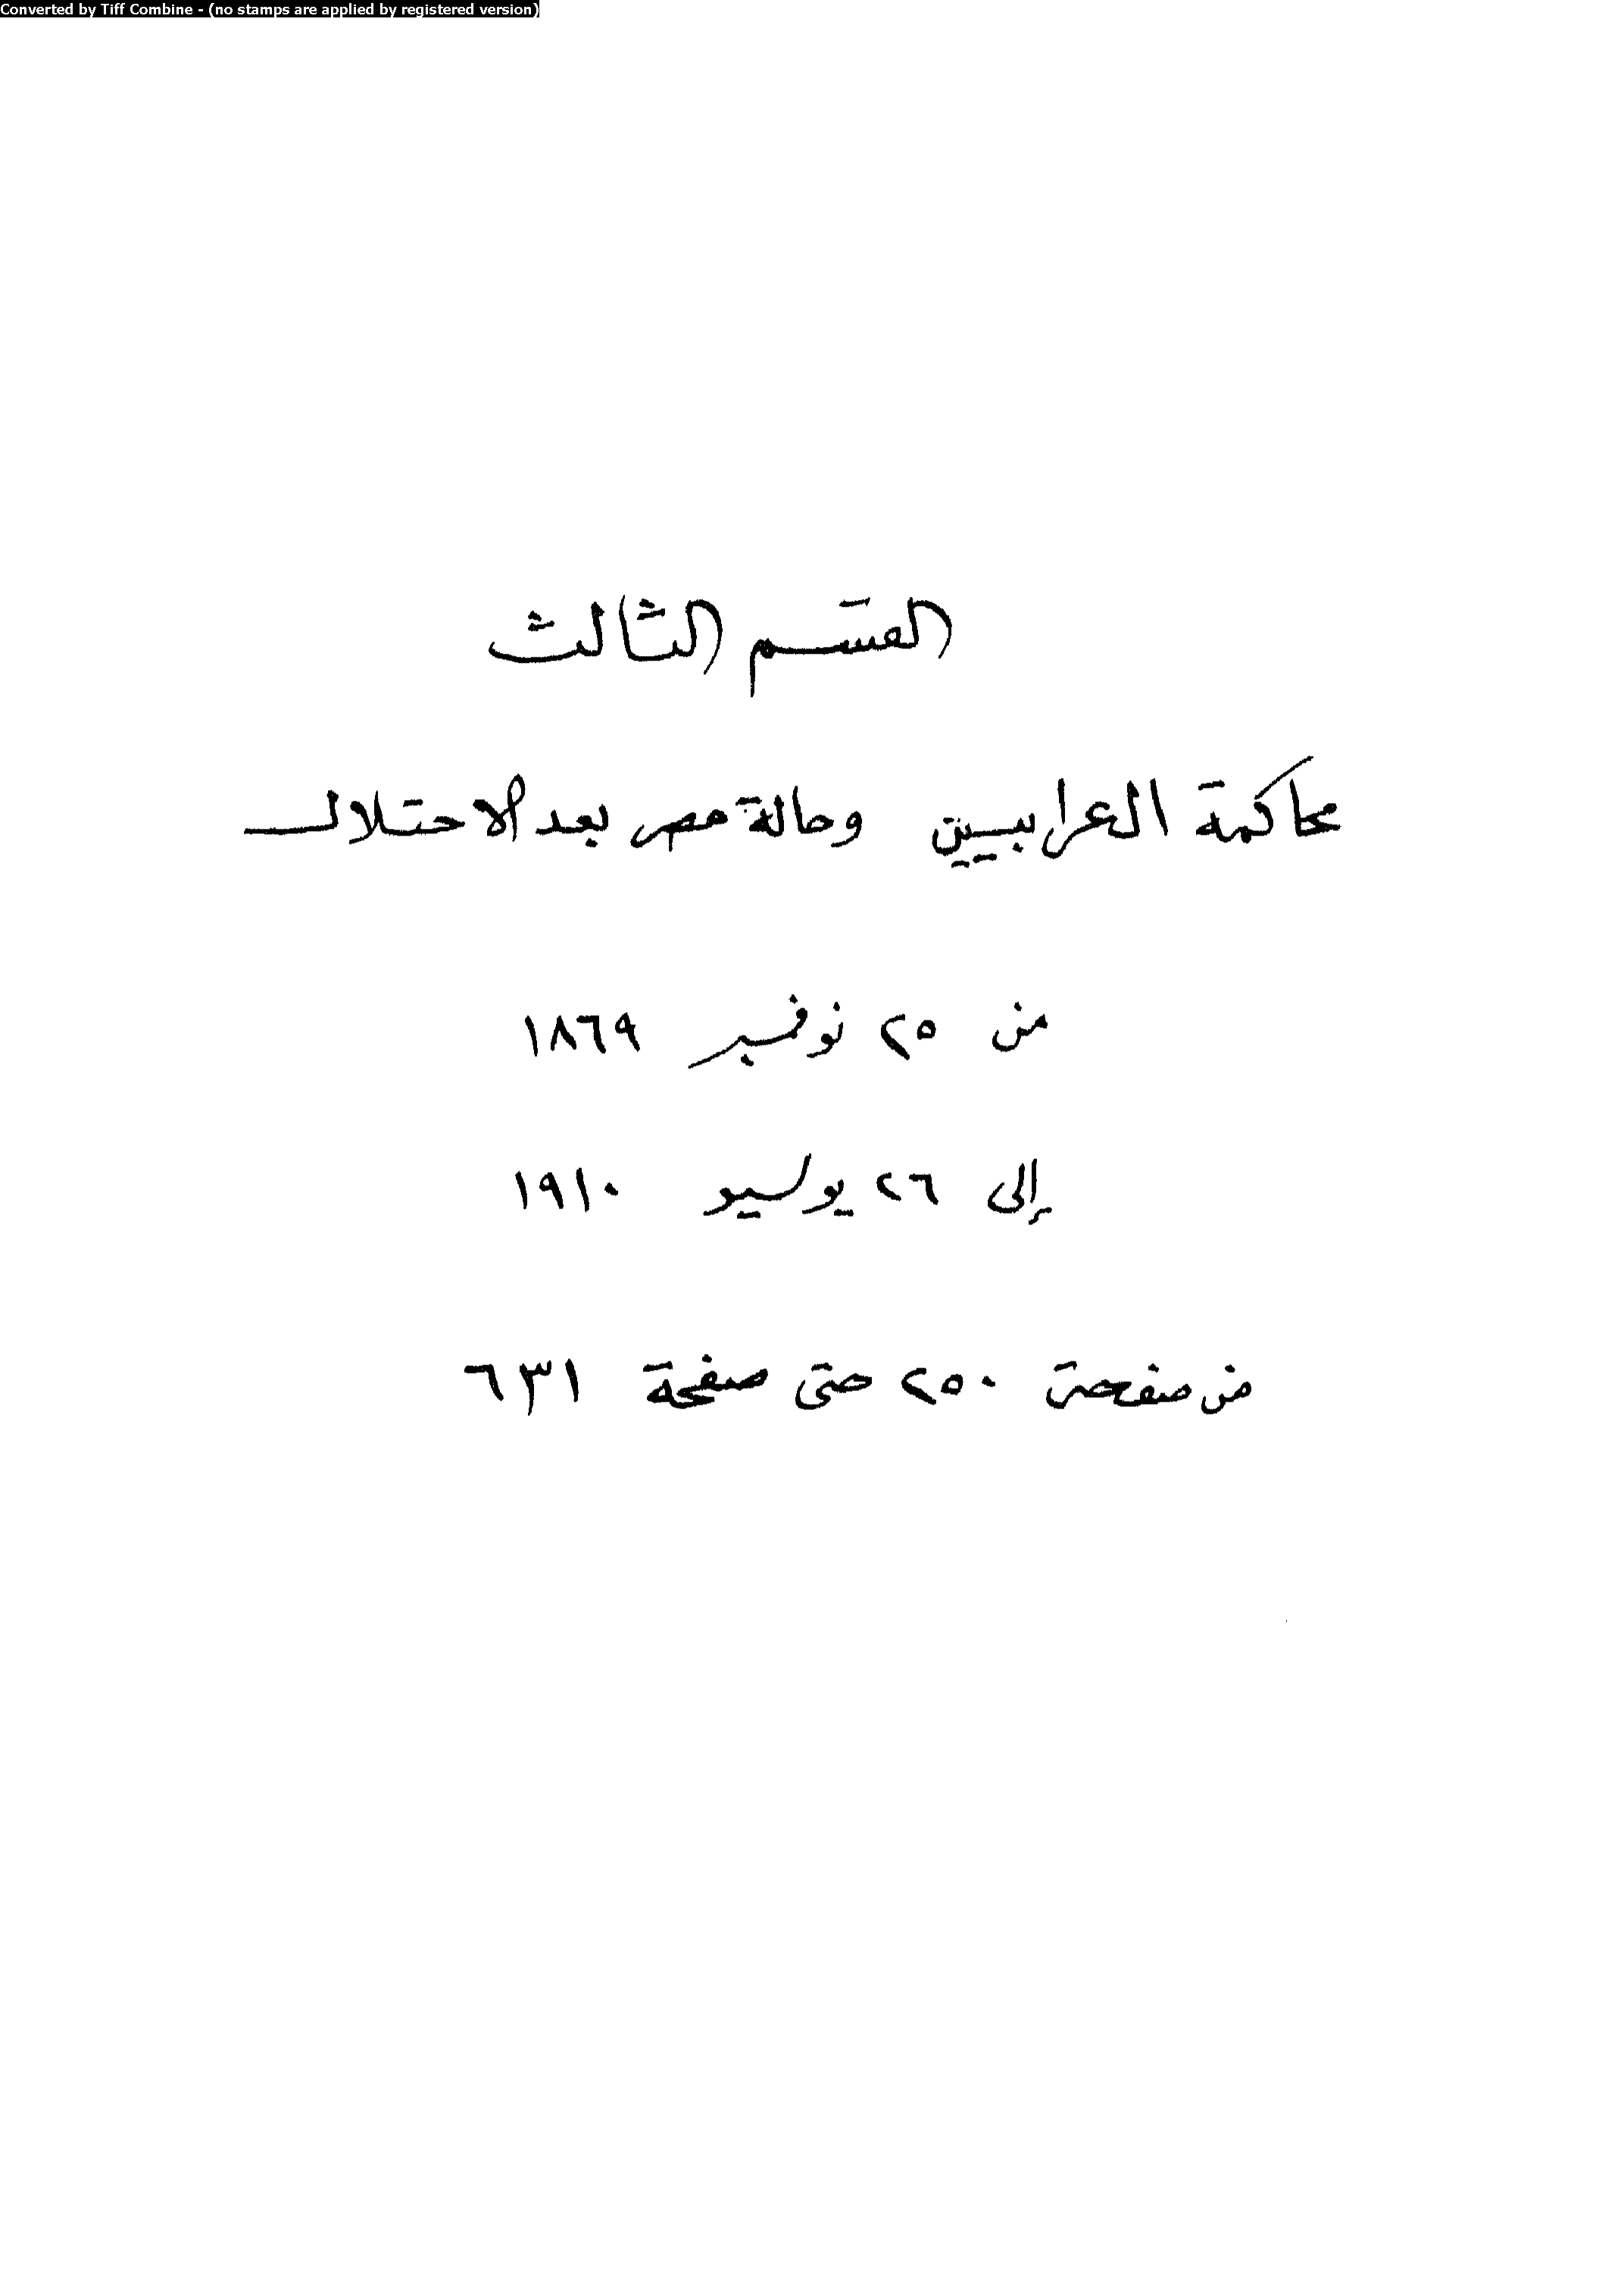 Converted by Tiff Combine - (no stamps are applied by registered version)
القسم الثالث
محاكمة العرابيين وحالة مصر بعد الاحتلال
من ٢٥ نوفمبر ١٨٦٩
إلى ٢٦ يوليو ١٩١٠
من صفحة ٢٥٠ حتى صفحة ٦٣١